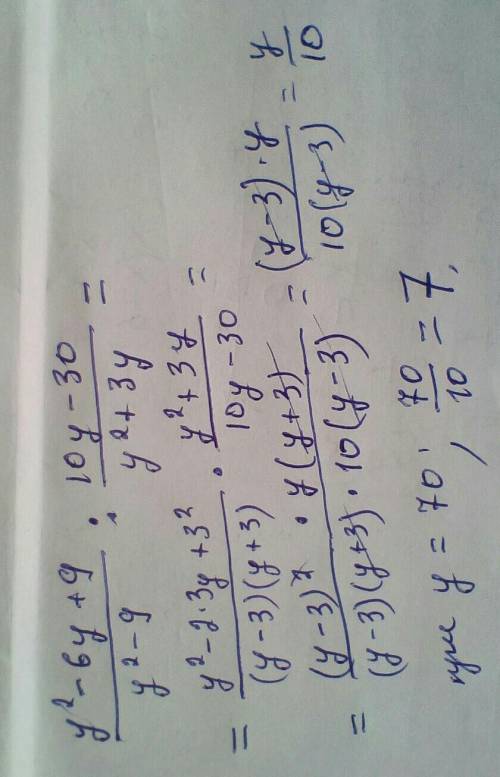 (y² - 6y + 9)/(y² - 9) : (10y - 30)/(y² + 3y) =
= (y² - 2·3y + 3²)/((y - 3)(y + 3)) · (y² + 3y)/(10y - 30) =
= ((y - 3)² · y(y + 3))/((y - 3)(y + 3) · 10(y - 3)) = ((y - 3) · y)/(10(y - 3)) = y/10
при y = 70; 70/10 = 7.